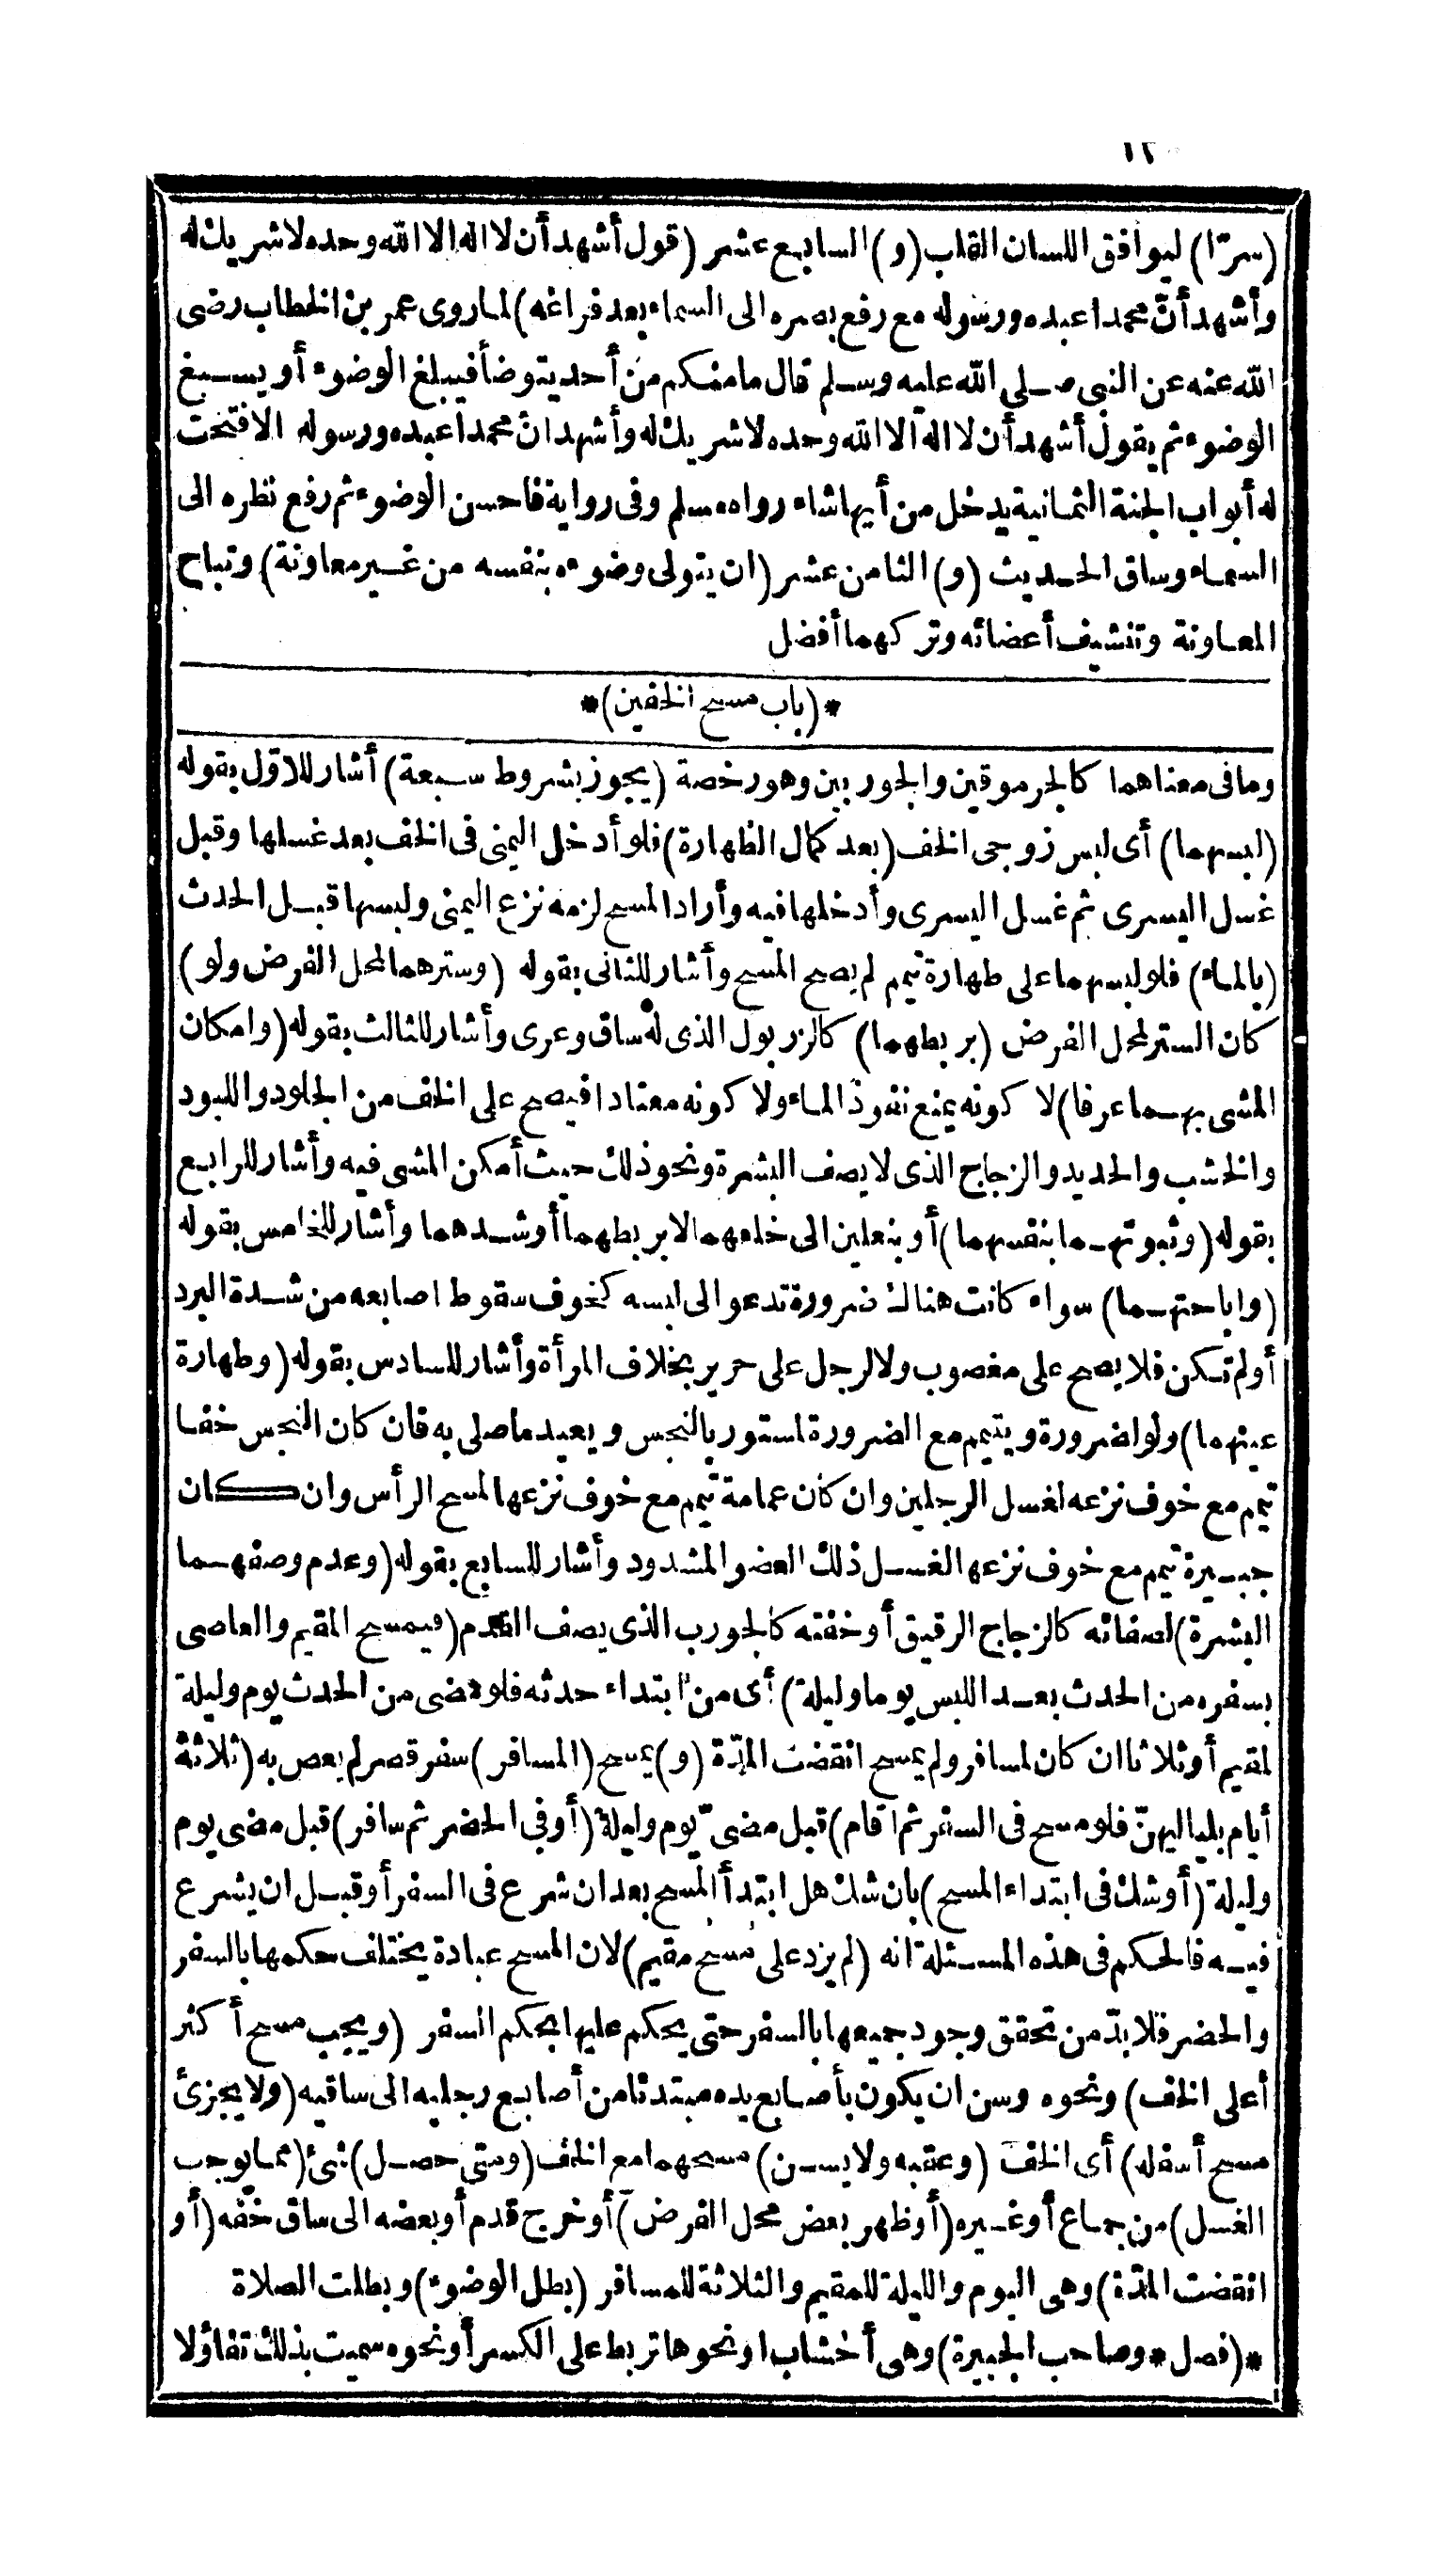 ١٢
(سرّا) ليوافق اللسان القلب (و) السابع عشر (قول أشهد أن لا اله الا الله وحده لا شريك له
وأشهد أنّ محمدا عبده ورسوله مع رفع بصره الى السماء بعد فراغه) لما روى عمر بن الخطاب رضى
الله عنه عن النبى صلى الله عليه وسلم قال ما منكم من أحد يتوضأ فيبلغ الوضوء أو يسبغ
الوضوء ثم يقول أشهد أن لا اله الا الله وحده لا شريك له وأشهد ان محمدا عبده ورسوله الا فتحت
له أبواب الجنة الثمانية يدخل من أيها شاء رواه مسلم وفى رواية فاحسن الوضوء ثم رفع نظره الى
السماء وساق الحديث (و) الثامن عشر (ان يتولى وضوءه بنفسه من غير معاونة) وتباح
المعاونة وتنشيف أعضائه وتركهما أفضل
* (باب مسح الخفين) *
وما فى معناهما كالجرموقين والجوربين وهو رخصة (يجوز بشروط سبعة) أشار للاوّل بقوله
(لبسهما) أى لبس زوجى الخف (بعد كمال الطهارة) فلو أدخل اليمنى فى الخف بعد غسلها وقبل
غسل اليسرى ثم غسل اليسرى وأدخلها فيه وأراد المسح لزمه نزع اليمنى ولبسها قبل الحدث
(بالماء) فلو لبسهما على طهارة تيمم لم يصح المسح وأشار للثانى بقوله (وسترهما لمحل الفرض ولو)
كان الستر لمحل الفرض (بربطهما) كالزربول الذى له ساق وعرى وأشار للثالث بقوله (وامكان
المشى بهما عرفا) لا كونه يمنع نفوذ الماء ولا كونه معتادا فيصح على الخف من الجلود واللبود
والخشب والحديد والزجاج الذى لا يصف البشرة ونحو ذلك حيث أمكن المشى فيه وأشار للرابع
بقوله (وثبوتهما بنفسهما) أو بنعلين الى خلعهما لا بربطهما أو شدهما وأشار للخامس بقوله
(واباحتهما) سواء كانت هناك ضرورة تدعو الى لبسه كخوف سقوط اصابعه من شدة البرد
أو لم تكن فلا يصح على مغصوب ولا لرجل على حرير بخلاف المرأة وأشار للسادس بقوله (وطهارة
عينهما) ولو لضرورة ويتيمم مع الضرورة لمستور بالنجس ويعيد ما صلى به فان كان النجس خفا
تيمم مع خوف نزعه لغسل الرجلين وان كان عمامة تيمم مع خوف نزعها لمسح الرأس وان كان
جبيرة تيمم مع خوف نزعها لغسل ذلك العضو المشدود وأشار للسابع بقوله (وعدم وصفهما
البشرة) لصفائه كالزجاج الرقيق أو خفته كالجورب الذى يصف القدم (فيمسح المقيم والعاصى
بسفره من الحدث بعد اللبس يوما وليلة) أى من ابتداء حدثه فلو مضى من الحدث يوم وليلة
لمقيم أو ثلاثا ان كان لمسافر ولم يمسح انقضت المدّة (و) يمسح (المسافر) سفر قصر لم يعص به (ثلاثة
أيام بلياليهنّ فلو مسح فى السفر ثم اقام) قبل مضىّ يوم وليلة (أو فى الحضر ثم سافر) قبل مضى يوم
وليلة (أو شك فى ابتداء المسح) بان شك هل ابتدأ المسح بعد ان شرع فى السفر أو قبل ان يشرع
فيه فالحكم فى هذه المسئلة انه (لم يزد على مسح مقيم) لان المسح عبادة يختلف حكمها بالسفر
والحضر فلا بدّ من تحقق وجود جميعها بالسفر حتى يحكم عليها بحكم السفر (ويجب مسح أكثر
أعلى الخف) ونحوه وسن ان يكون بأصابع يده مبتدئا من أصابع رجليه الى ساقيه (ولا يجزئ
مسح أسفله) أى الخف (وعقبه ولا يسن) مسحهما مع الخف (ومتى حصل) شئ (مما يوجب
الغسل) من جماع أو غيره (أو ظهر بعض محل الفرض) أو خرج قدم أو بعضه الى ساق خفه (أو
انقضت المدّة) وهى اليوم والليلة للمقيم والثلاثة للمسافر (بطل الوضوء) وبطلت الصلاة
* (فصل * وصاحب الجبيرة) وهى أخشاب او نحوها تربط على الكسر أو نحوه سميت بذلك تفاؤلا